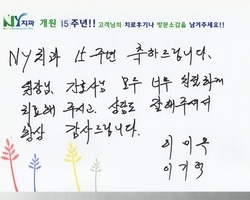 NY치과 개원 15주년!! 고객님의 치료후기나 방문소감을 남겨주세요!!
NY치과 15주년 축하드립니다.
원장님, 간호사님 모두 너무 친절하게
치료해 주시고, 상담도 잘해주셔서
항상 감사드립니다.
이미옥
이기혁